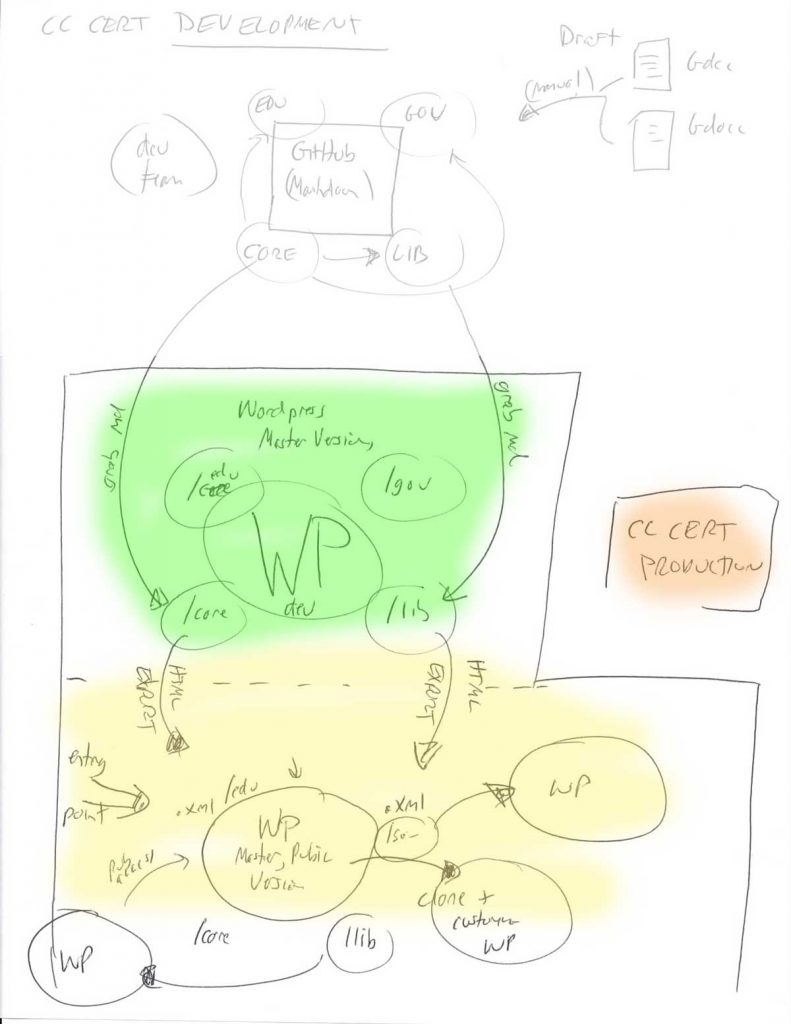 CC CERT DEVELOPMENT
Draft
(manual)
Gdoc
Gdocc
EDU
GOV
dev
team
GitHub
(Markdown)
CORE
LIB
grab md
grab md
Wordpress
Master Version
/edu
/gov
WP
dev
/core
/lib
CC CERT
PRODUCTION
HTML
EXPORT
HTML
EXPORT
entry
point
.xml
/edu
.xml
WP
WP
Master, Public
Version
public
access
clone +
customize
WP
/core
/lib
WP